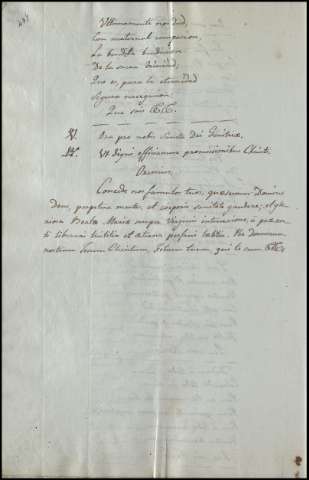 Con maternal compasion,
La bendita bendicion
De la suma Trinidad,
Que es, para la eternidad
Segura
Que sois &. &.
V. Ora pro nobis Sancta Dei Genitrix,
R. Ut digni efficiamur promissionibus Christi.
Oremus.
Concede nos famulos tuos, quæsumus Domine
Deus, perpetua mentis, et corporis sanitate gaudere; et glo-
riosa Beatæ Mariæ semper Virginis intercessione, a præsen-
ti liberari tristitia et æterna perfrui lætitia. Per Dominum
nostrum Jesum Christum, Filium tuum, qui tecum &.